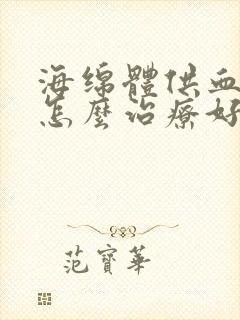 海绵體供血
怎麼治療好
范寶華